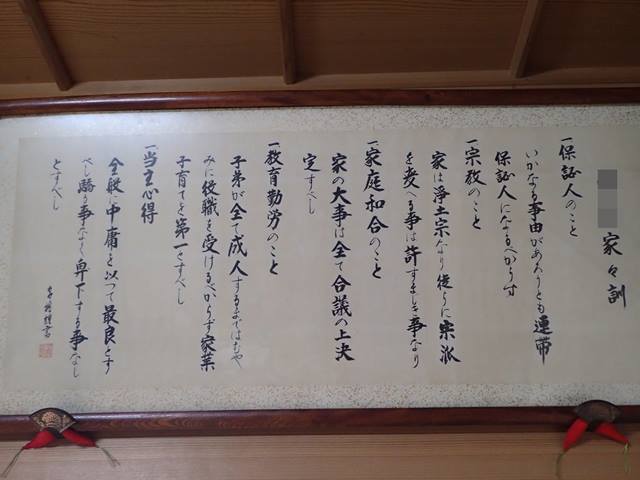 家々訓
一保証人のこと
いかなる事由があろうとも連帯
保証人になるべからず
一宗教のこと
家は浄土宗なり徒らに宗派
を変へる事は許すまじき事なり
一家庭和合のこと
家の大事は全て合議の上決
定すべし
一教育勤労のこと
子弟が全て成人するまではむや
みに役職を受けるべからず家業
子育てを第一とすべし
一当主心得
全般に中庸を以つて最良とす
べし驕る事なく卑下する事なし
とすべし